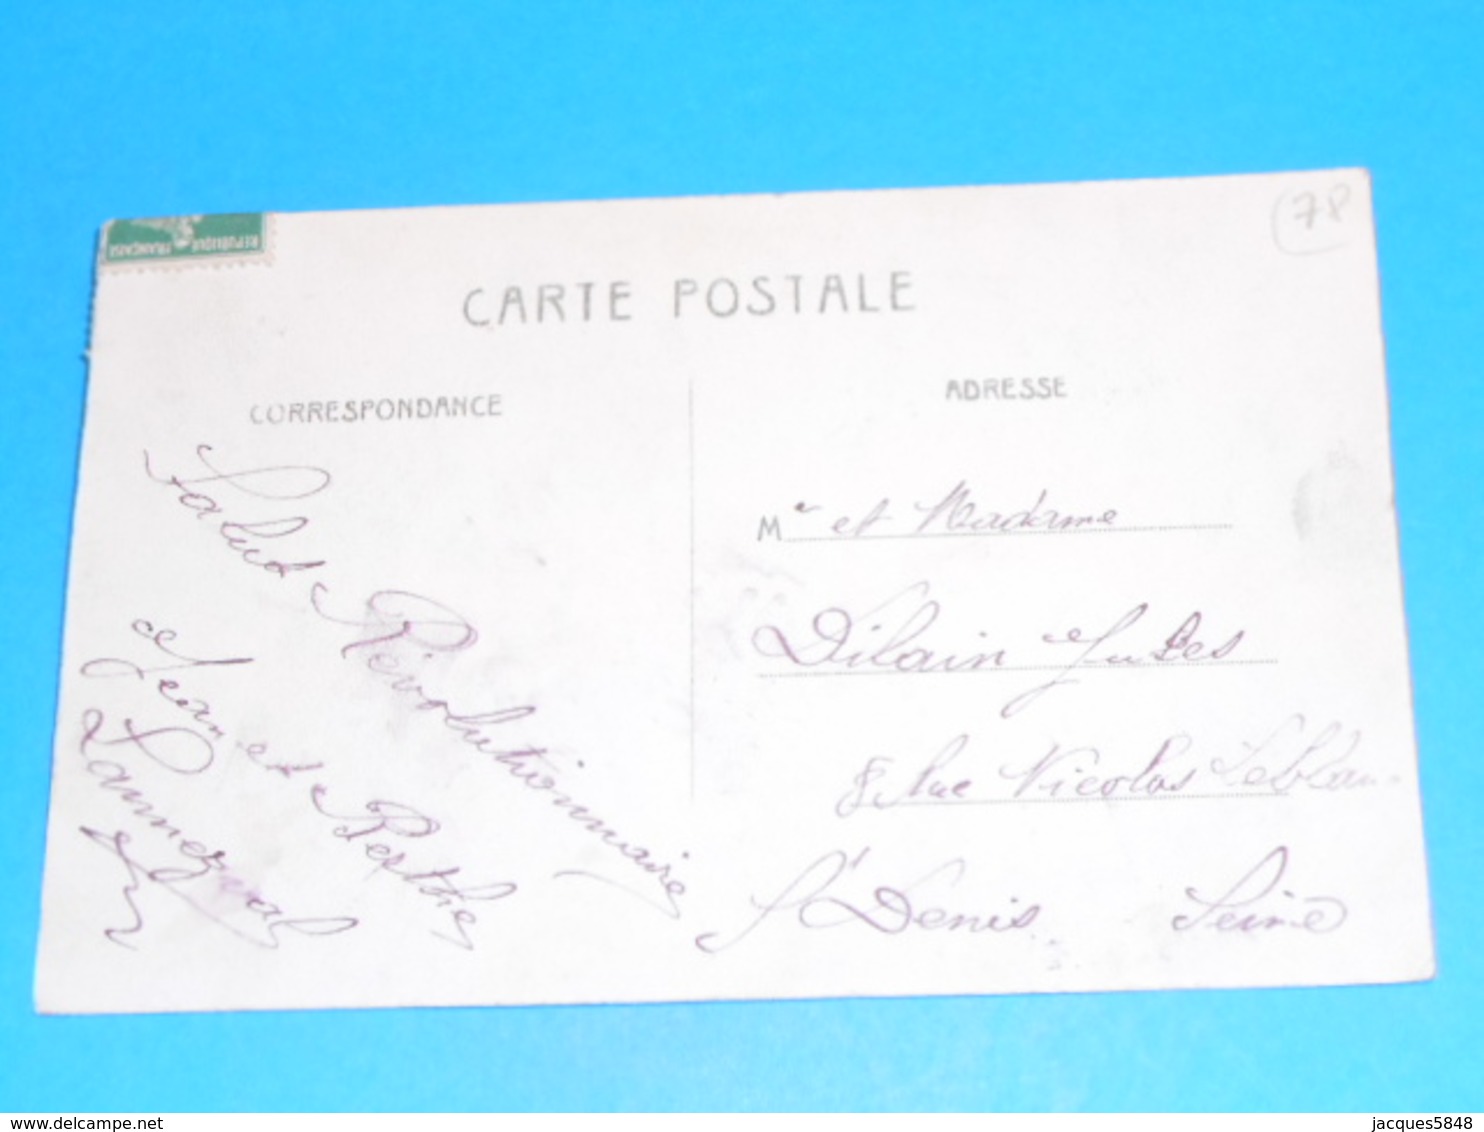 78
RÉPUBLIQUE FRANÇAISE
CARTE POSTALE
CORRESPONDANCE
Salut Révolutionnaire
Jean et Berthe
ADRESSE
Mr et Madame
Dilain Jules
8 Rue Nicolas Leblanc
St Denis Seine
delcampe.net
jacques5848